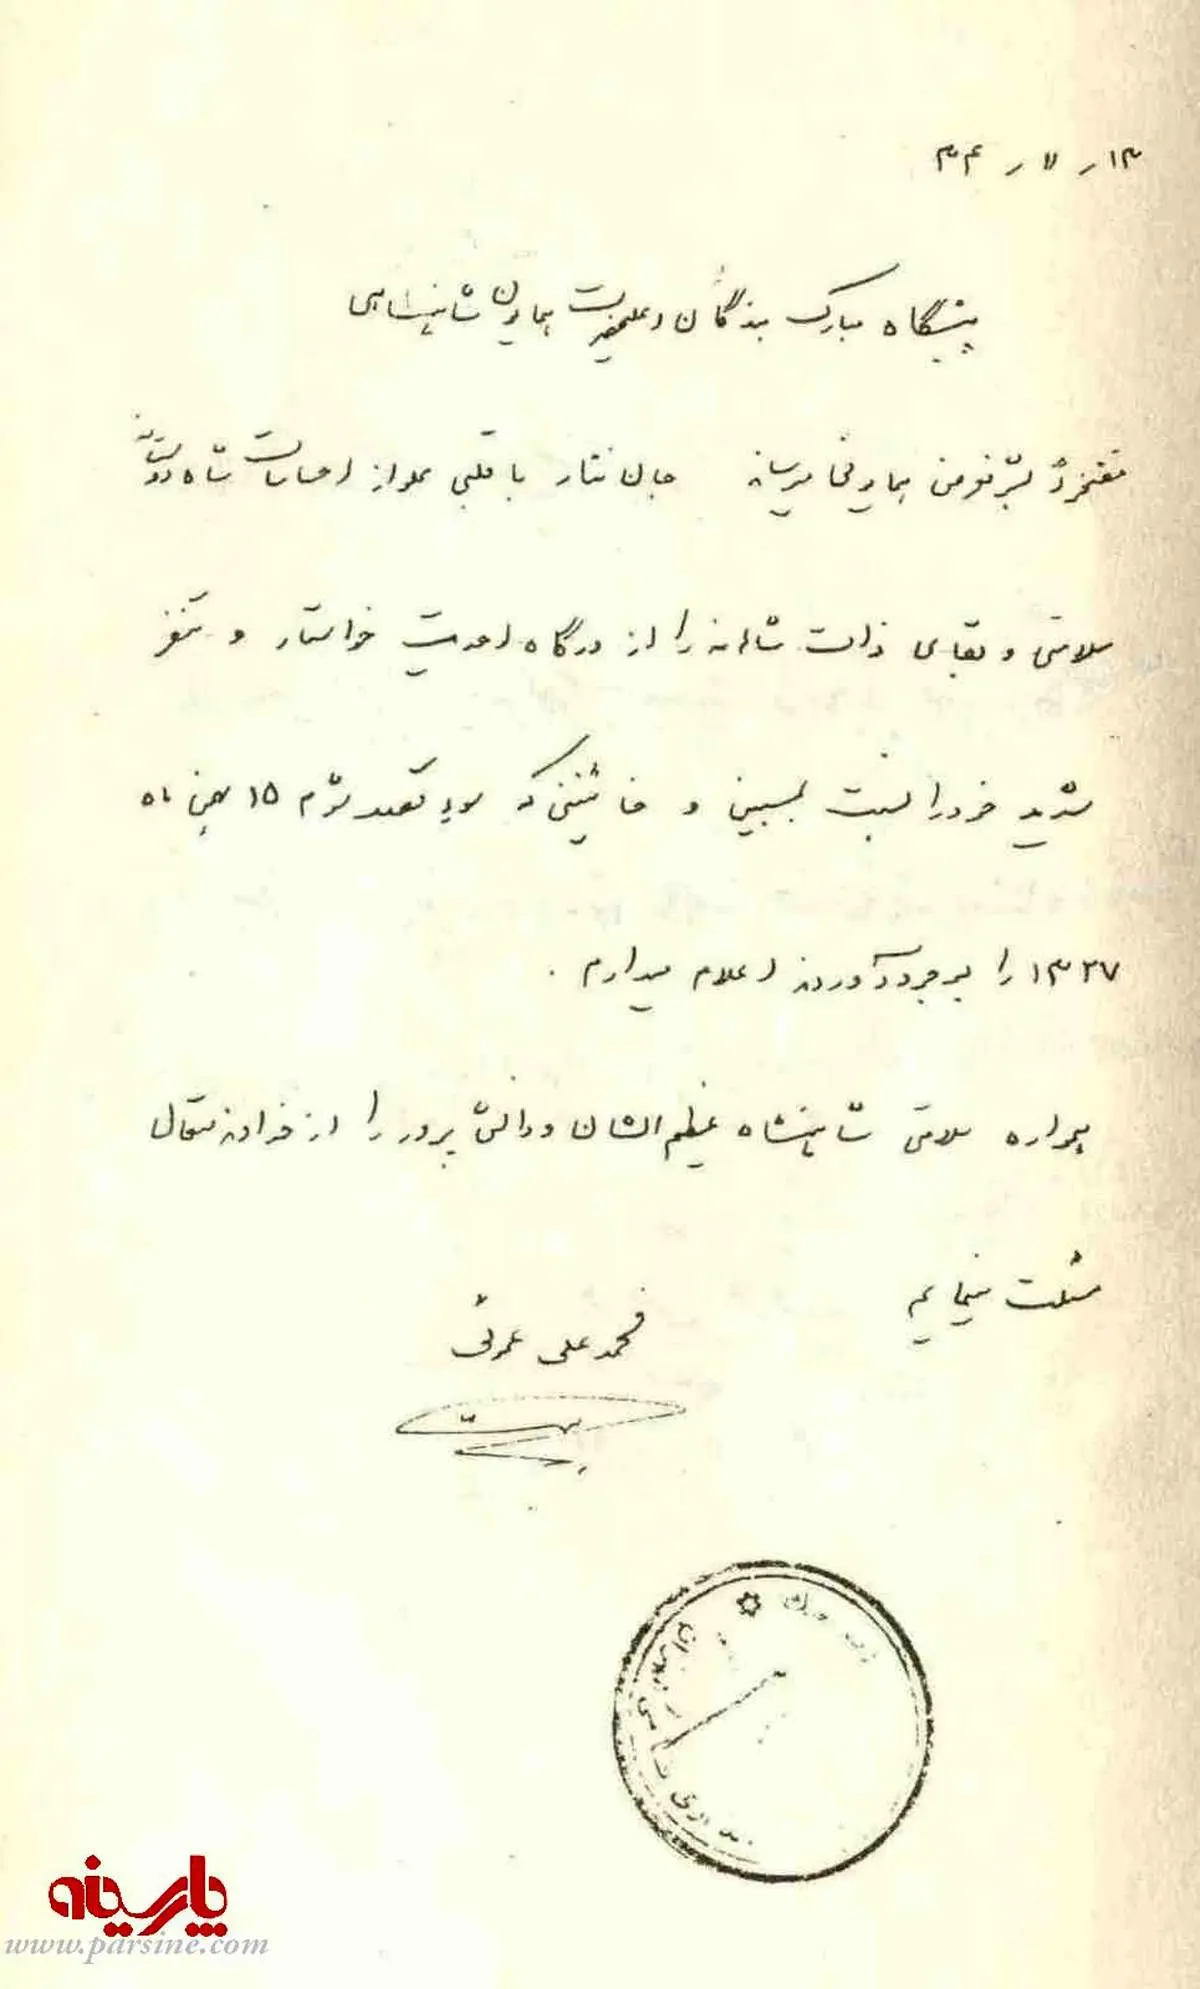 ۱۳ ر ۷ ر ۳۴
پیشگاه مبارک بندگان اعلیحضرت همایون شاهنشاهی
مفتخراً بشرفعرض همایونی میرساند جان نثار با قلبی مملو از احساسات شاه دوستانه
سلامتی و بقای ذات شاهانه را از درگاه احدیت خواستار و تنفر
شدید خود را نسبت بمسببین و خائنینی که سوء قصد شوم ۱۵ بهمن ماه
۱۳۲۷ را بوجود آوردند اعلام میدارم .
همواره سلامتی شاهنشاه عظیم الشان و دانش پرور را از خداوند متعال
مسئلت مینمایم
محمد علی
پارسینه
www.parsine.com